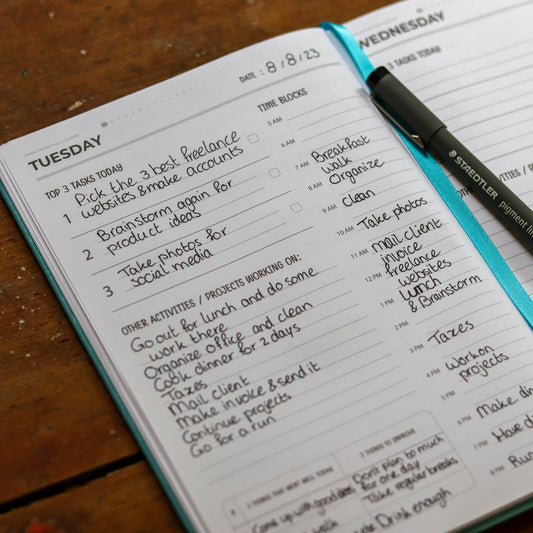 TUESDAY
DATE : 8/8/23
TOP 3 TASKS TODAY
1 Pick the 3 best freelance
websites & make accounts
2 Brainstorm again for
product ideas
3 Take photos for
social media
OTHER ACTIVITIES / PROJECTS WORKING ON:
Go out for lunch and do some
work there
Organize office and clean
Cook dinner for 2 days
Taxes
Mail client
Make invoice & send it
Continue projects
Go for a run
3 THINGS THAT WENT WELL TODAY
Come up with good ideas
walk
3 THINGS TO IMPROVE
Don't plan to much
for one day
Take regular breaks
Drink enough
TIME BLOCKS
5 AM
6 AM
7 AM Breakfast
walk
8 AM Organize
9 AM Clean
10 AM Take photos
11 AM mail client
invoice
12 PM freelance
websites
1 PM Lunch
& Brainstorm
2 PM
3 PM Taxes
4 PM work on
projects
5 PM
6 PM Make
7 PM Have
8 PM Run
WEDNESDAY
3 TASKS TODAY
STAEDTLER pigment